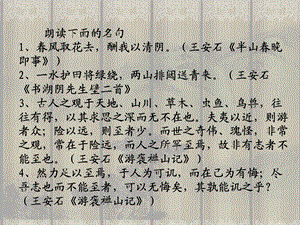 朗读下面的名句
1、春风取花去，酬我以清阴。（王安石《半山春晚
即事》）
2、一水护田将绿绕，两山排闼送青来。（王安石
《书湖阴先生壁二首》
3、古人之观于天地、山川、草木、虫鱼、鸟兽，往
往有得，以其求思之深而无不在也。夫夷以近，则游
者众；险以远，则至者少。而世之奇伟、瑰怪，非常
之观，常在于险远，而人之所罕至焉，故非有志者不
能至也。（王安石《游褒禅山记》）
4、然力足以至焉，于人为可讥，而在己为有悔；尽
吾志也而不能至者，可以无悔矣，其孰能讥之乎？
（王安石《游褒禅山记》）